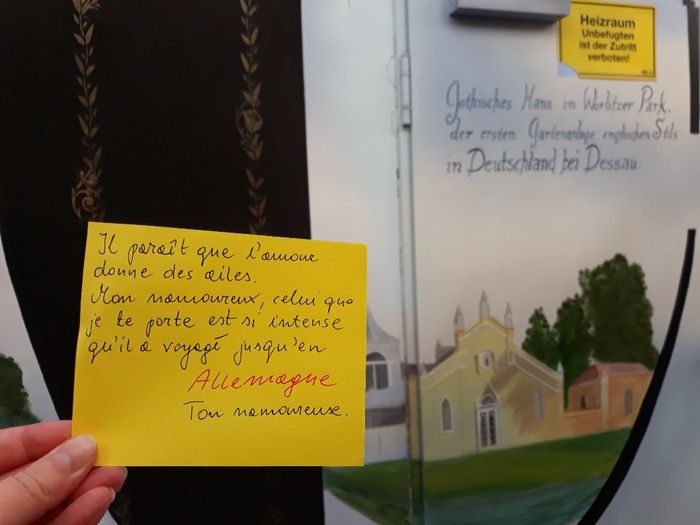 Heizraum
Unbefugten
ist der Zutritt
verboten!
Gothisches Haus im Wörlitzer Park.
der ersten Gartenanlage englischen Stils
in Deutschland bei Dessau
Il paraît que l'amour
donne des ailes.
Mon namoureux, celui que
je te porte est si intense
qu'il a voyagé jusqu'en
Allemagne
Ton namoureuse.